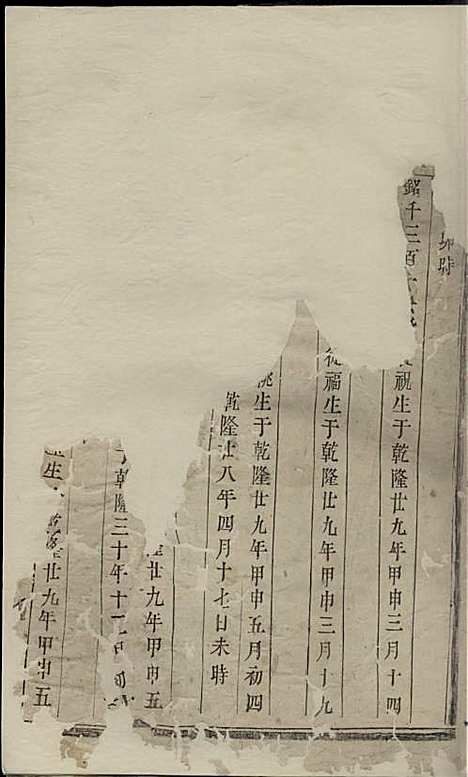 卯時
銘千三百十
祝生于乾隆廿九年甲申三月十四
從福生于乾隆廿九年甲申三月十九
生于乾隆廿九年甲申五月初四
乾隆廿八年四月十七日未時
廿九年甲申五
乾隆三十年十
生 乾隆廿九年甲申五